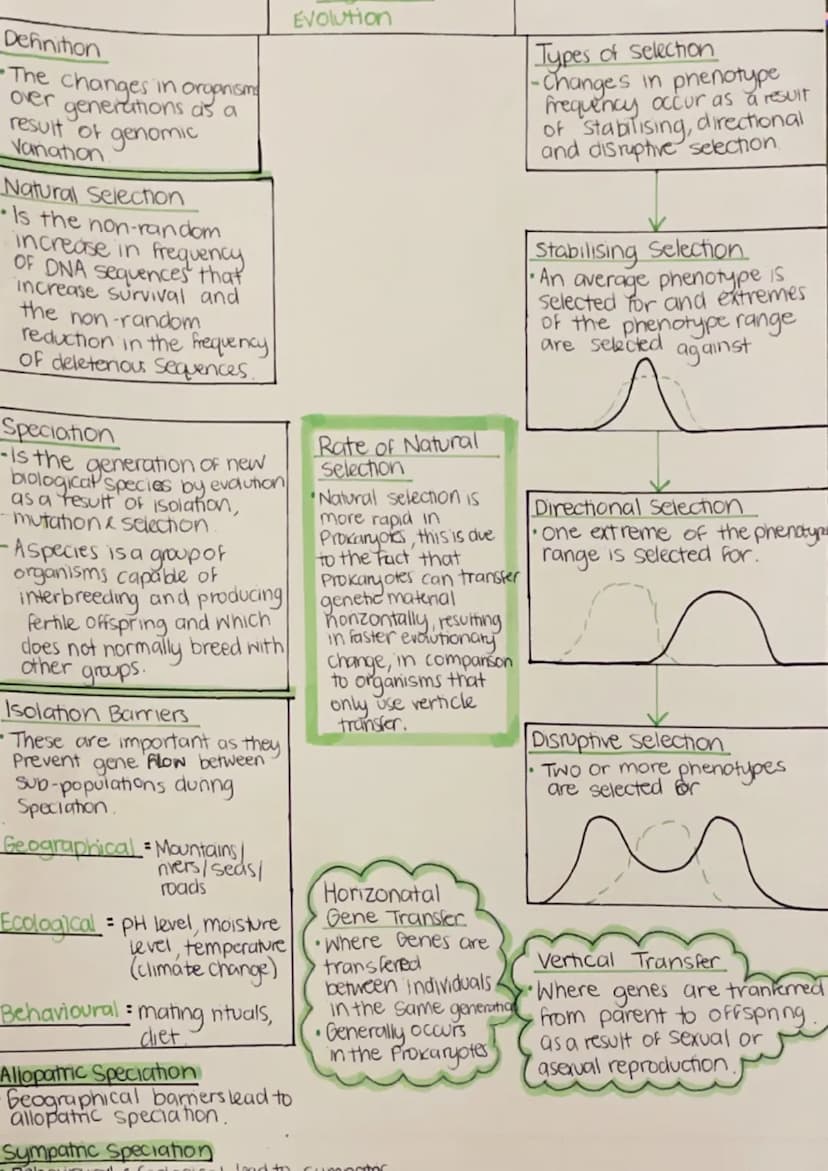 Evolution
Definition
• The changes in organisms
over generations as a
result of genomic
variation.
Natural Selection
• Is the non-random
increase in frequency
of DNA sequences that
increase survival and
the non-random
reduction in the frequency
of deleterious sequences.
Speciation
- Is the generation of new
biological species by evolution
as a result of isolation,
mutation & selection.
- A species is a group of
organisms capable of
interbreeding and producing
fertile offspring and which
does not normally breed with
other groups.
Isolation Barriers
• These are important as they
prevent gene flow between
sub-populations during
speciation.
Geographical = Mountains/
rivers/seas/
roads
Ecological = pH level, moisture
level, temperature
(climate change)
Behavioural = mating rituals,
diet
Allopatric Speciation
- Geographical barriers lead to
allopatric speciation.
Sympatric Speciation
lead to
Rate of Natural
Selection
• Natural selection is
more rapid in
Prokaryotes, this is due
to the fact that
Prokaryotes can transfer
genetic material
horizontally, resulting
in faster evolutionary
change, in comparison
to organisms that
only use verticle
transfer.
Horizonatal
Gene Transfer
• Where Genes are
transfered
between individuals
in the same generation
• Generally occurs
in the Prokaryotes
Types of selection
- Changes in phenotype
frequency occur as a result
of stabilising, directional
and disruptive selection.
Stabilising Selection
• An average phenotype is
selected for and extremes
of the phenotype range
are selected against
Directional Selection
• One extreme of the phenotype
range is selected for.
Disruptive selection
• Two or more phenotypes
are selected for
Vertical Transfer
• Where genes are tranferred
from parent to offspring
as a result of sexual or
asexual reproduction.